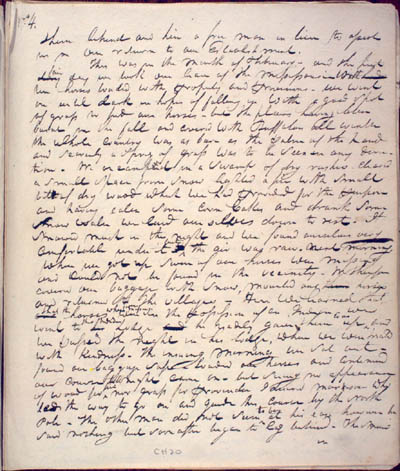 No 4.
them behind and hire a free man in lieu to assist
us on our return to our Establishment.
This was in the month of February - and the first
fair day we took our leave of the Mississippi with
horses loaded with property and Provisions. We went
on until dark in hope of falling in with a good spot
of grass to feed our horses - but the plains having been
burnt in the fall and covered with Buffaloe all winter
the whole Country was as bare as the palm of the hand
and scarcely a sprig of grass was to be seen in any direc-
tion. We encamped in a swamp of dry rushes cleared
a small space from snow lighted a fire with small
bits of dry wood which we had provided for the purpose
and having eaten some Corn Cakes and drank some
snow water we laid ourselves down to rest. It
snowed much in the night and we found ourselves very
comfortable under it as the air was raw. next morning
when we got up, two of our horses were missing
and could not be found in the vicinity. We therefore
covered our baggage with snow, mounted our horses
and returned to the villages. Here we learned that
the horses were in the possession of an Indian. We
went to his lodge and he readily gave them up, and
we passed the night in his lodge, where we were treated
with kindness. The ensuing morning we set out and
found our baggage safe loaded our horses and continued
our course till night came on - but seeing no appearance
of wood nor grass for Provender I desired Morrison
the way to go on and guide the course by the North
Pole. The other man did not seem to be at his ease however he
said nothing but soon after began to lag behind. The snow
in
CH20